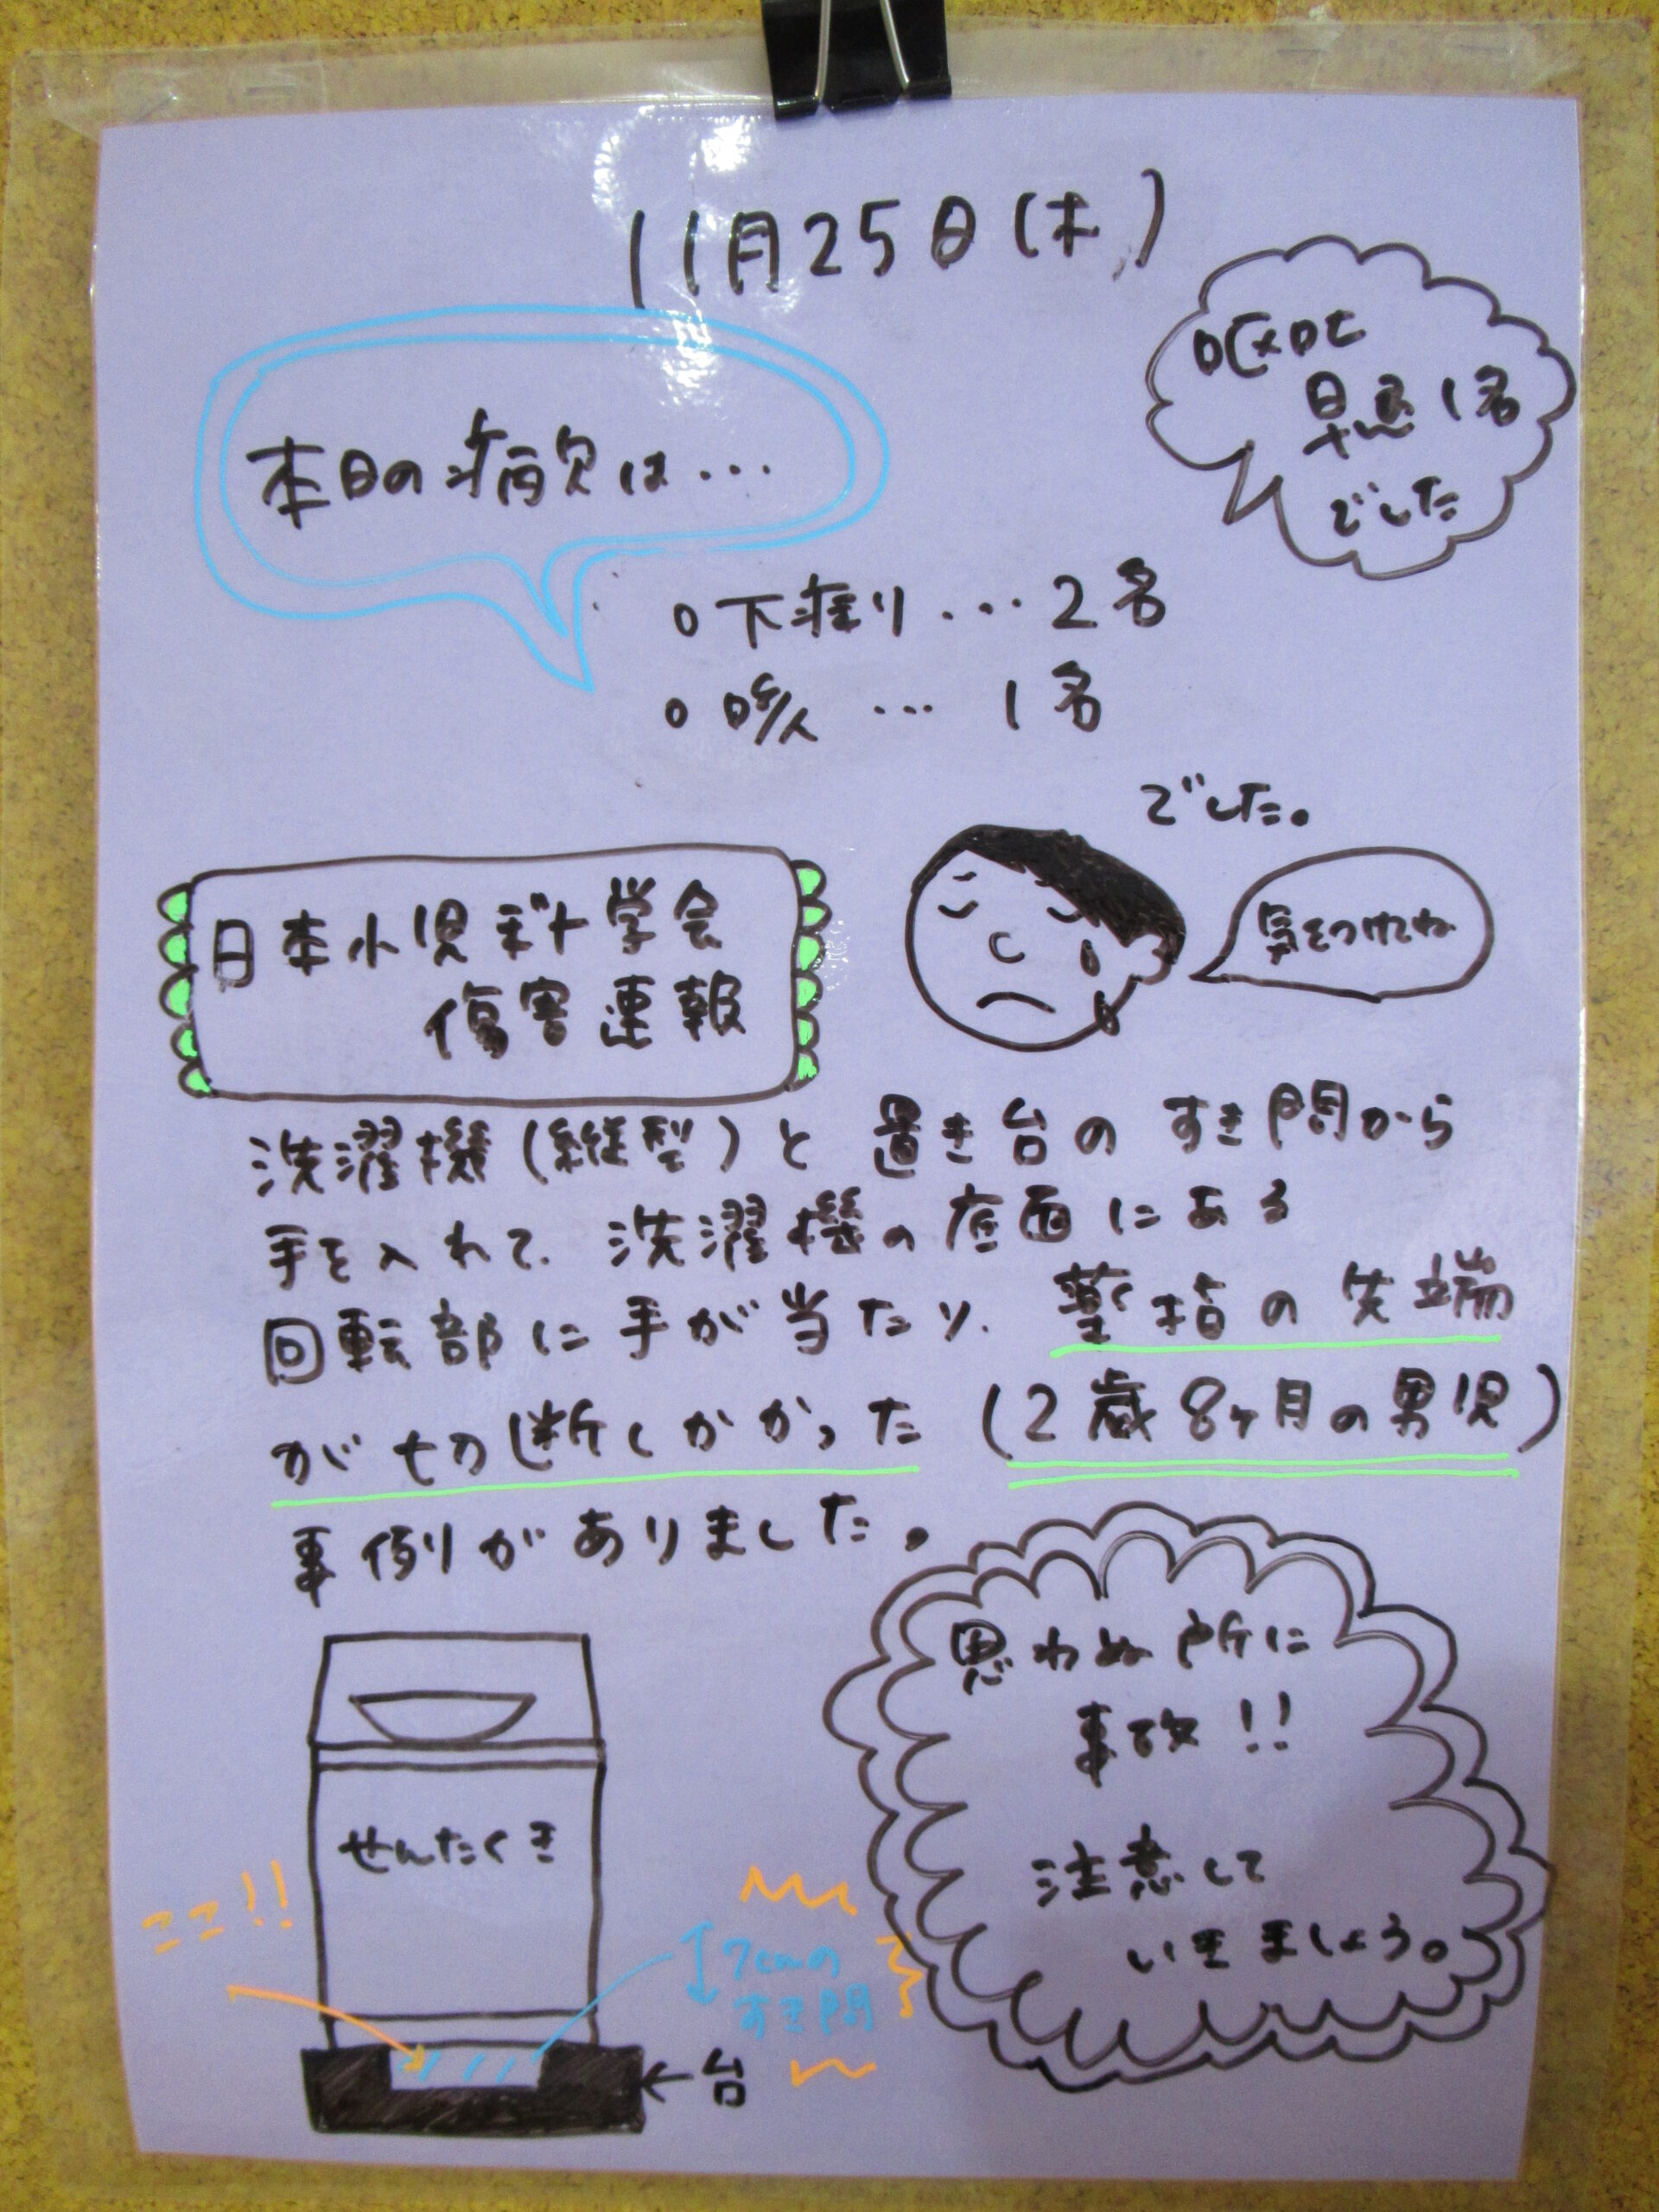 11月25日(木)
嘔吐
早退1名
でした
本日の病欠は...
○下痢り...2名
○咳...1名
でした。
気をつけてね
日本小児科学会
傷害速報
洗濯機(縦型)と置き台のすき間から
手を入れて、洗濯機の底面にある
回転部に手が当たり、薬指の先端
が切断しかかった(2歳8ヶ月の男児)
事例がありました。
思わぬ所に
事故!!
注意して
いきましょう。
せんたくき
ココ!!
7cmの
すき間
←台